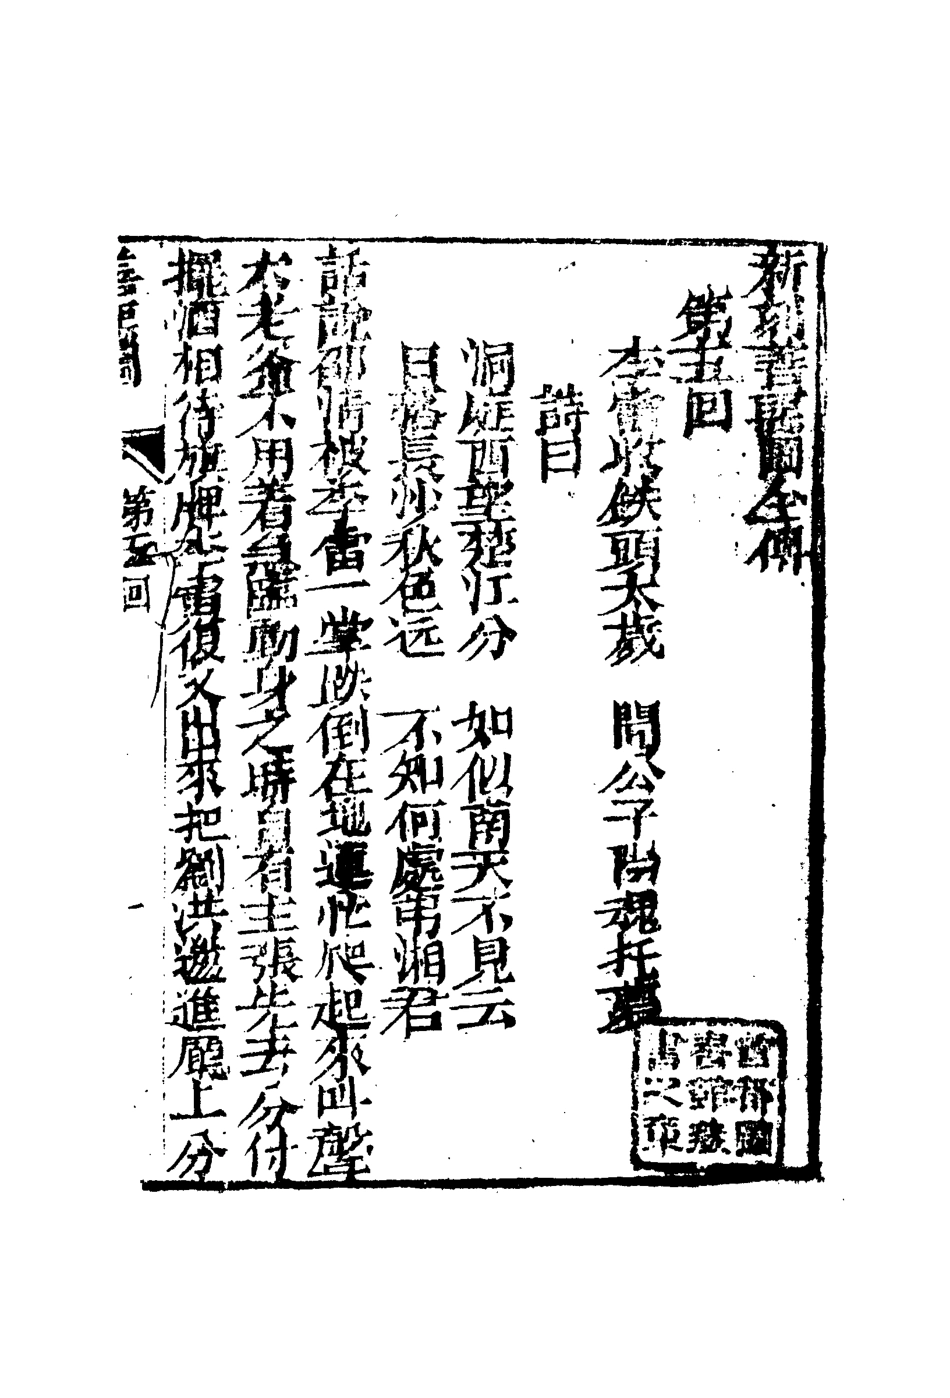 新刻善惡圖全傳
第五回
李雷收鉄頭太歲　問公子陰魂托夢
詩曰
洞庭西望楚江分　如似南天不見云
日落長沙秋色远　不知何處弔湘君
話說邵青被李雷一掌跌倒在地連忙爬起來叫聲
大老爺不用着急臨動身之時自有主張先去分付
擺酒相待旗牌李雷復又出來把劉洪邀進廳上分
善惡圖
第五回
首都圖
書館藏
書之章